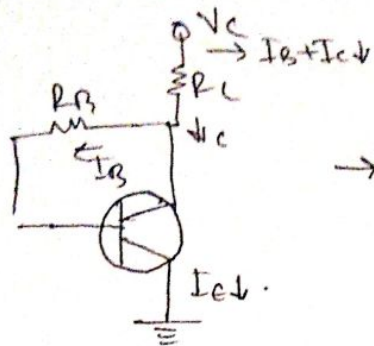 VC
→ IB+IC↓
RL
RB
↓IC
← IB
→
IE↓.